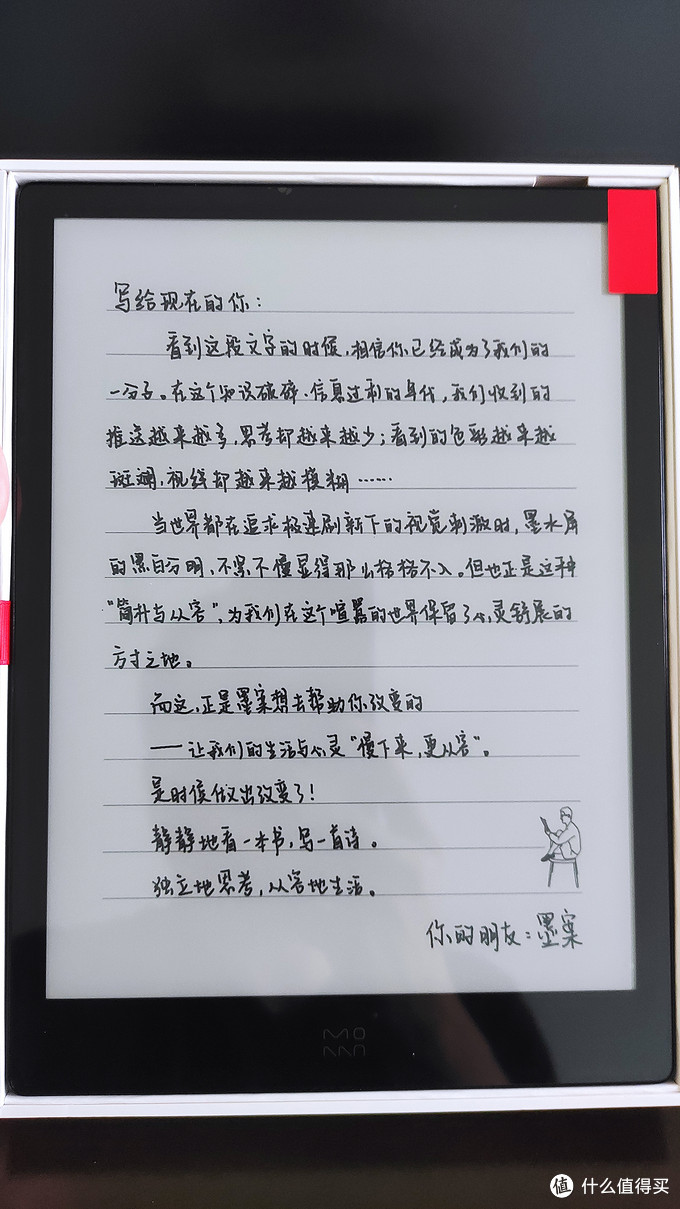 写给现在的你：
看到这段文字的时候，相信你已经成为了我们的
一分子。在这个知识破碎、信息过剩的年代，我们收到的
推送越来越多，思考却越来越少；看到的色彩越来越
斑斓，视线却越来越模糊……
当世界都在追求极速刷新下的视觉刺激时，墨水屏
的黑白分明、不紧不慢显得那么格格不入。但也正是这种
“简朴与从容”，为我们在这个喧嚣的世界保留了心灵舒展的
方寸之地。
而这，正是墨案想去帮助你改变的
——让我们的生活与心灵“慢下来，更从容”。
是时候做出改变了！
静静地看一本书，写一首诗。
独立地思考，从容地生活。
你的朋友：墨案
MO
AAN
值 什么值得买